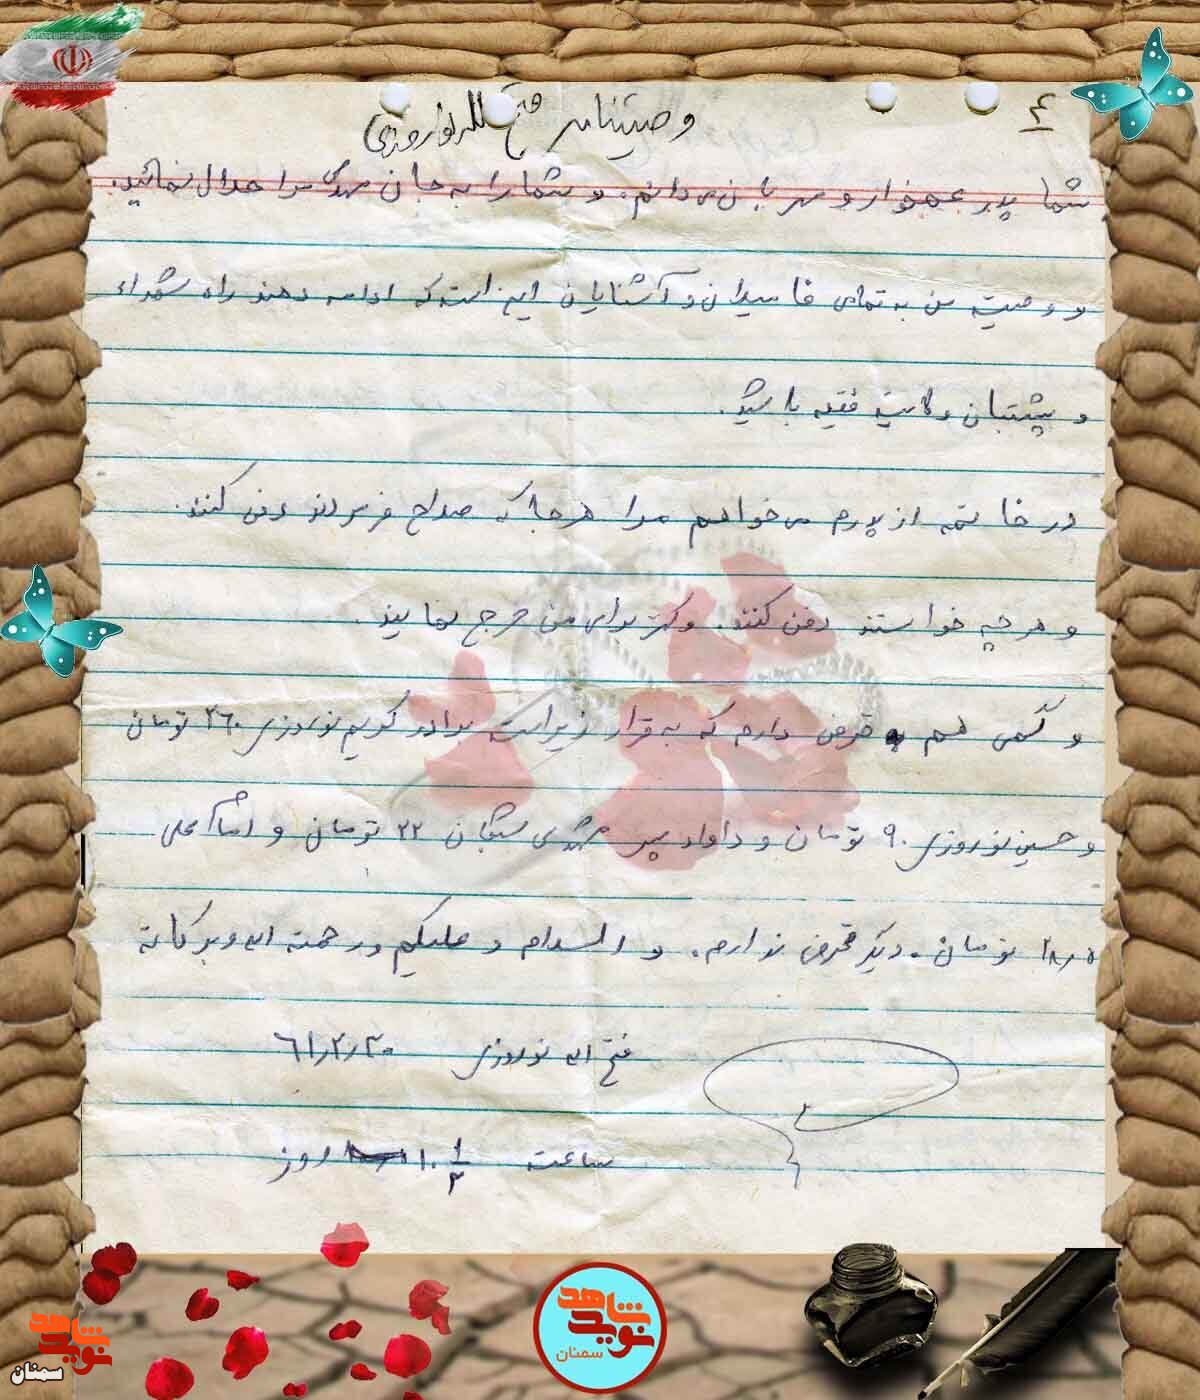 ۴
وصیتنامه فتح الله نوروزی
شما پدر غمخوار و مهربان می‌دانم. و شما را به جان مهدی مرا حلال نمائید.
و وصیت من به تمامی فامیلان و آشنایان این است که ادامه دهند راه شهداء
و پشتبان ولایت فقیه باشید.
در خاتمه از پدرم می‌خواهم مرا هرجا که صلاح فرمودند دفن کنند.
و هر چه خواستند دفن کنند. و کمتر برای من خرج نمایند.
و کمی هم قرض دارم که به قرار زیر است برادر کریم نوروزی ۲۶۰ تومان
و حسین نوروزی ۹۰ تومان و داود پسر مهدی ۲۲ تومان و
تومان. دیگر قرض ندارم. والسلام و علیکم و رحمته اله و برکاته
فتح اله نوروزی ۶۱/۲/۲۰
ساعت ۱۰ ۱/۲ روز
نوید شاهد
سمنان
نوید شاهد
سمنان